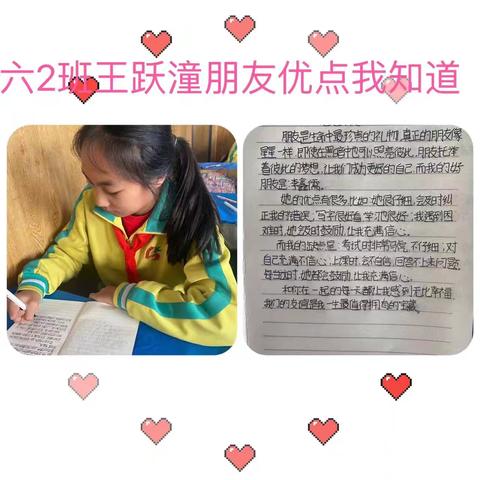 六2班王跃潼朋友优点我知道
朋友是生命中最珍贵的礼物,真正的朋友像
星星一样,即使在黑暗中也可以照亮彼此,朋友托举
着彼此的梦想,让我们成为更好的自己,而我的好
朋友是李鑫儒。
她的优点有很多,比如:她很仔细,会及时纠
正我的错误,写字很好看,学习也很好;我遇到困
难时,她会及时鼓励,让我充满信心。
而我的缺点是:考试时非常马虎,不仔细;对
自己充满不信心;上课时,会不自信,回答不上来问题,
每当此时,她都会鼓励,让我充满信心。
和你在一起的每一天都让我感到无比幸福,
我们的友谊是我一生最值得拥有的宝藏。